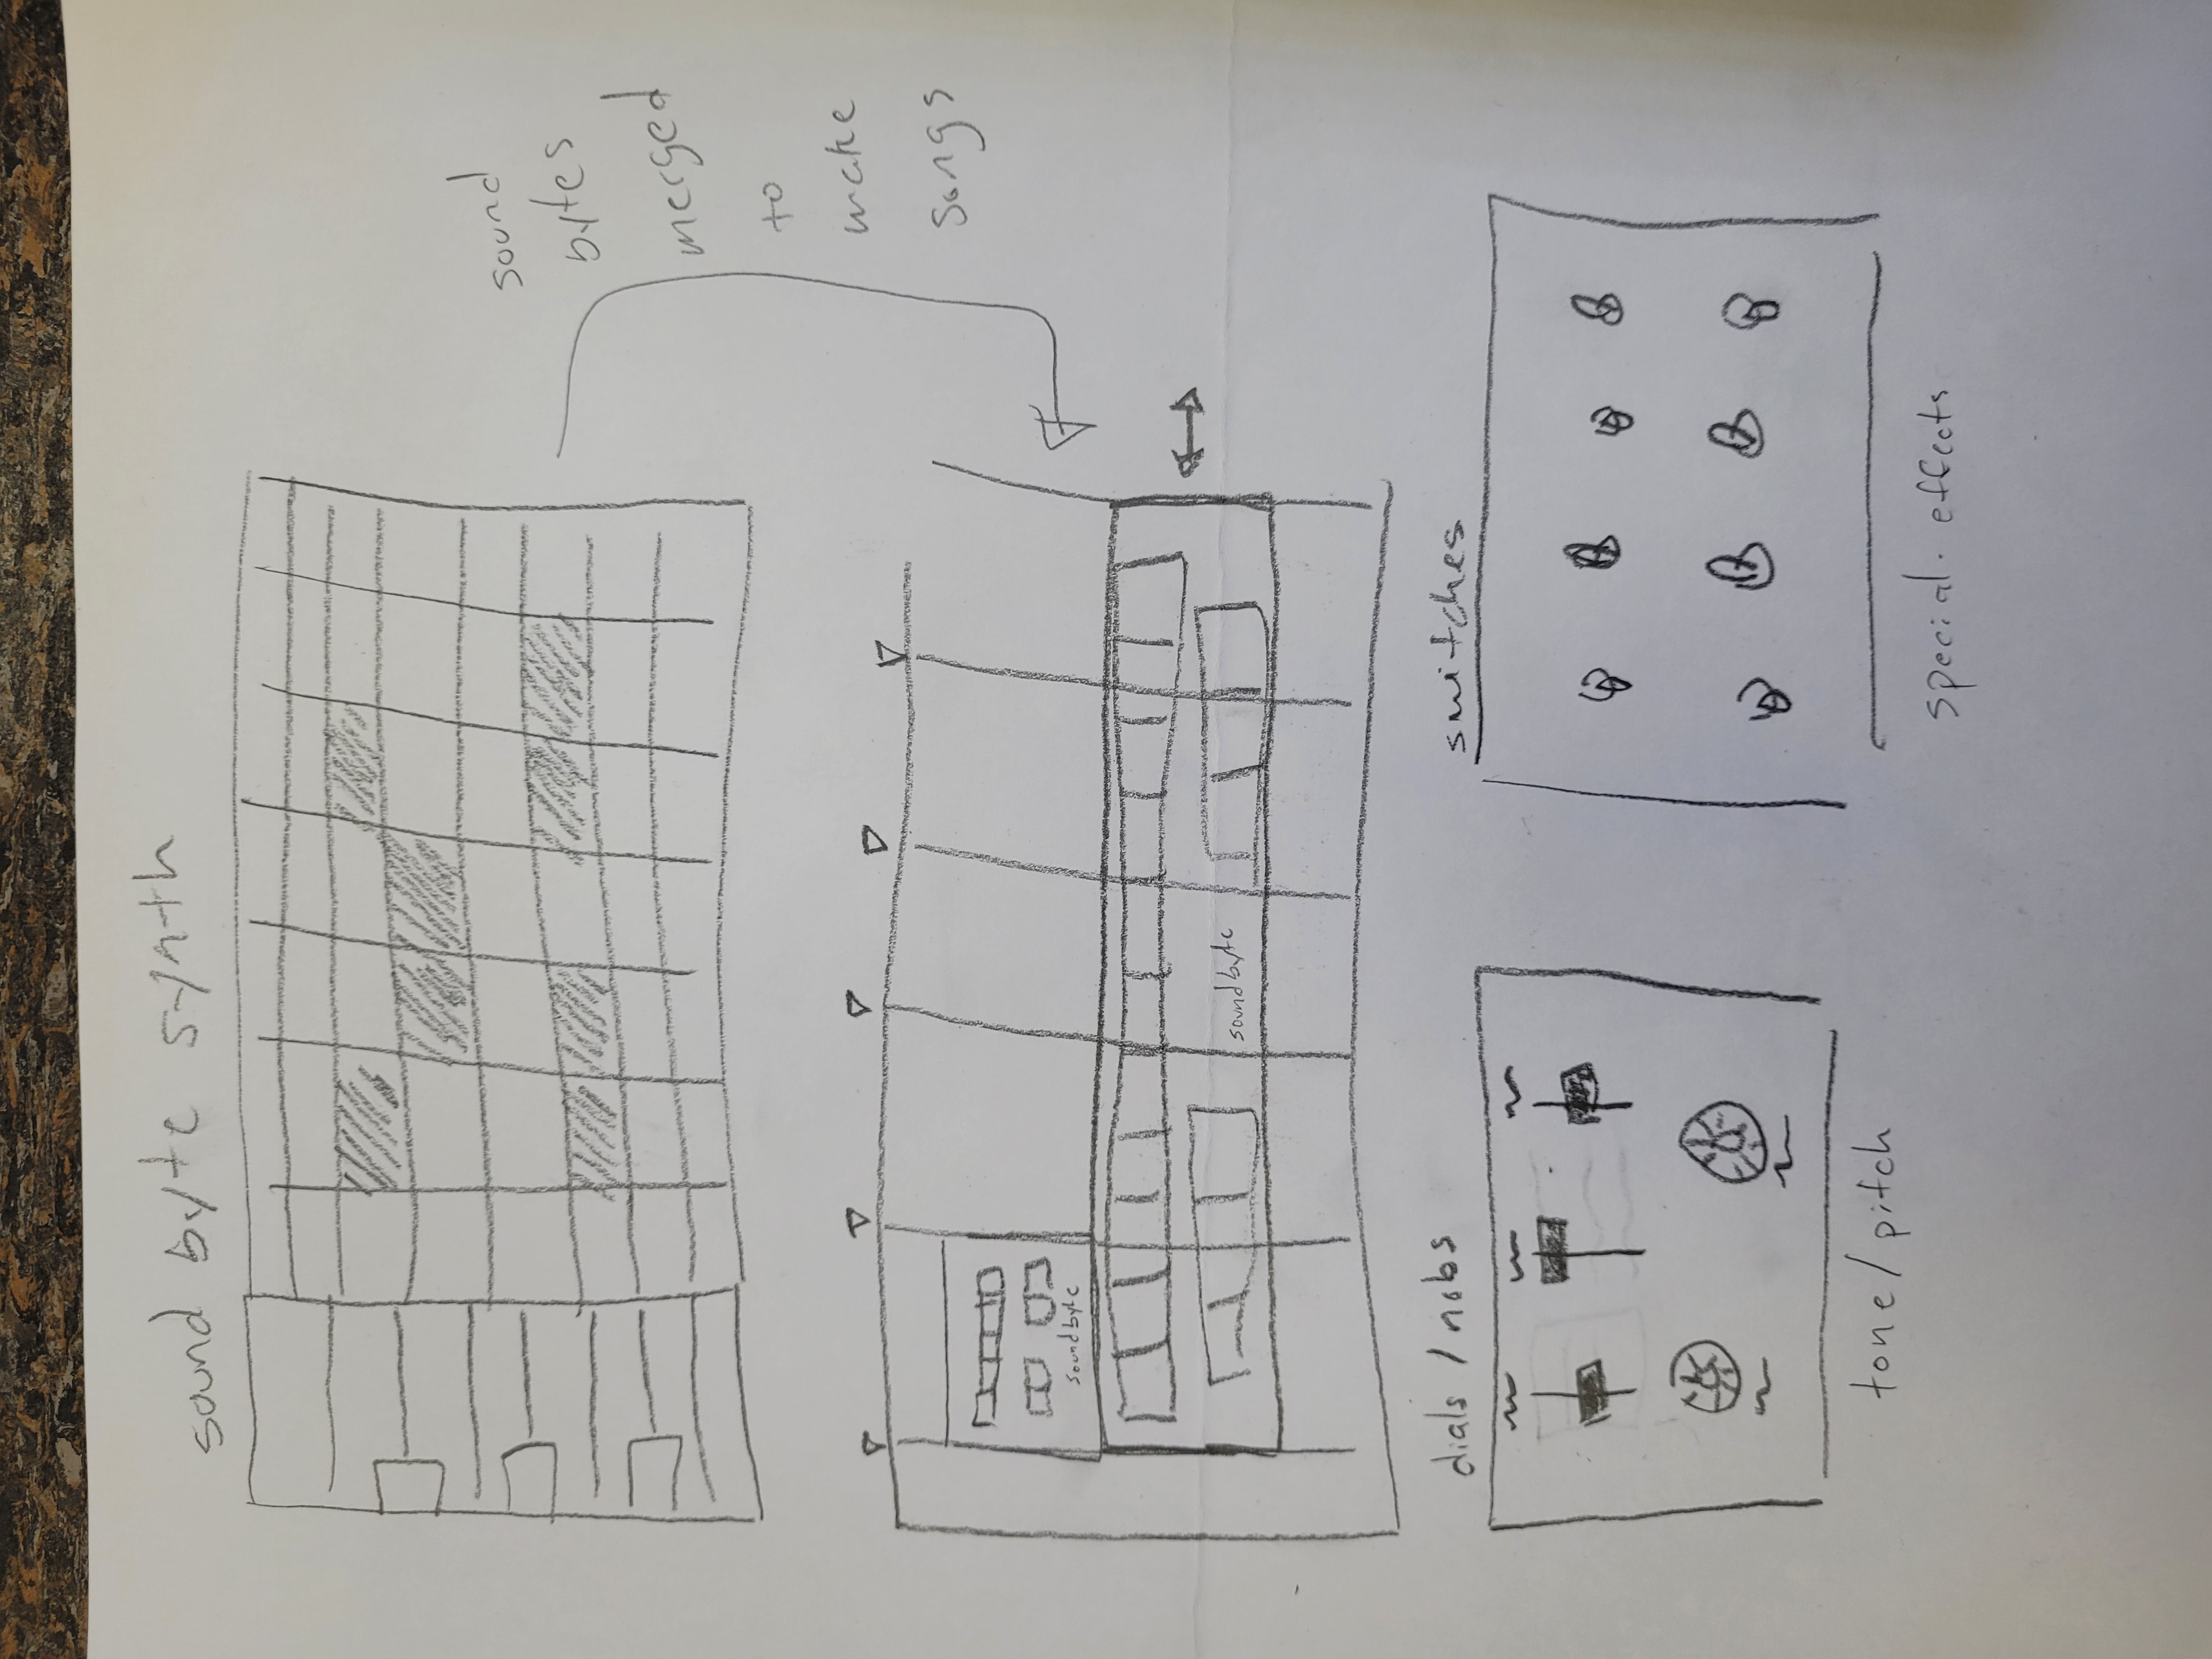 sound byte synth
sound
bytes
merged
to
make
songs
soundbyte
soundbyte
dials / nobs
switches
tone/pitch
special. effects